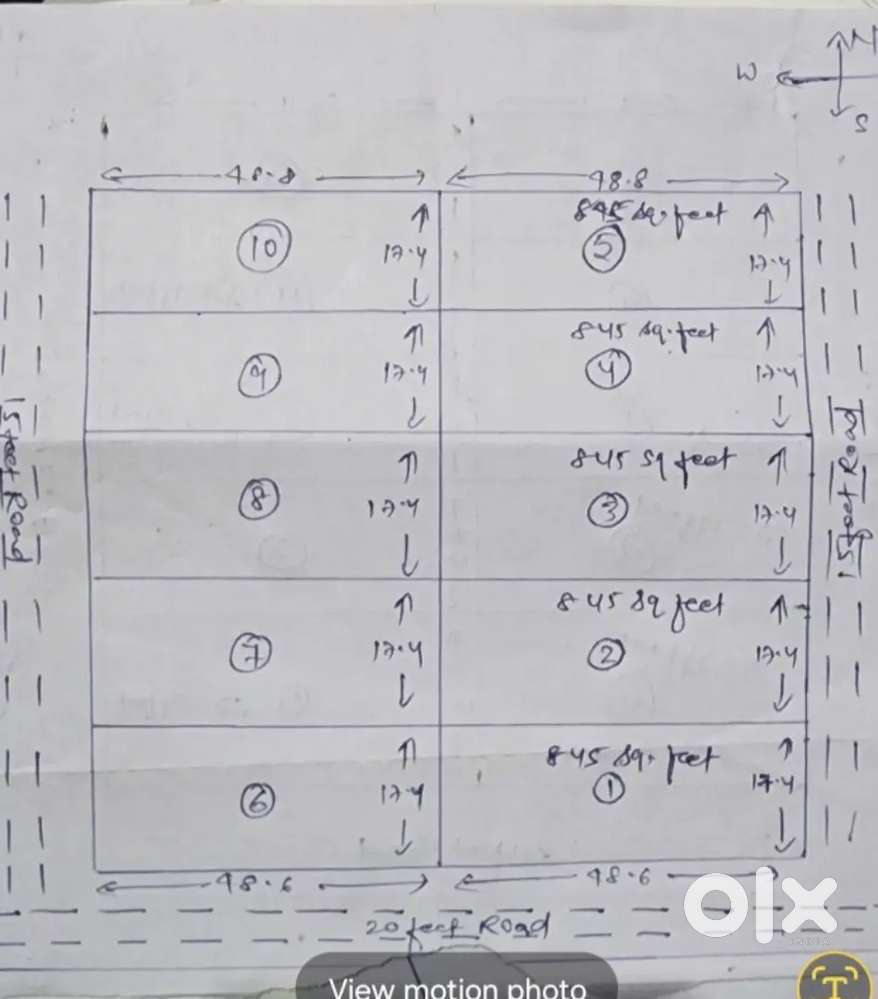 N
W
S
48.8 48.8
845 sq. feet
10 17.4 5 17.4
845 sq. feet
9 17.4 4 17.4
845 sq feet
8 17.4 3 17.4
845 sq feet
7 17.4 2 17.4
845 sq. feet
6 17.4 1 17.4
15 feet Road
15 feet Road
48.6 48.6
20 feet Road
olx
View motion photo
T